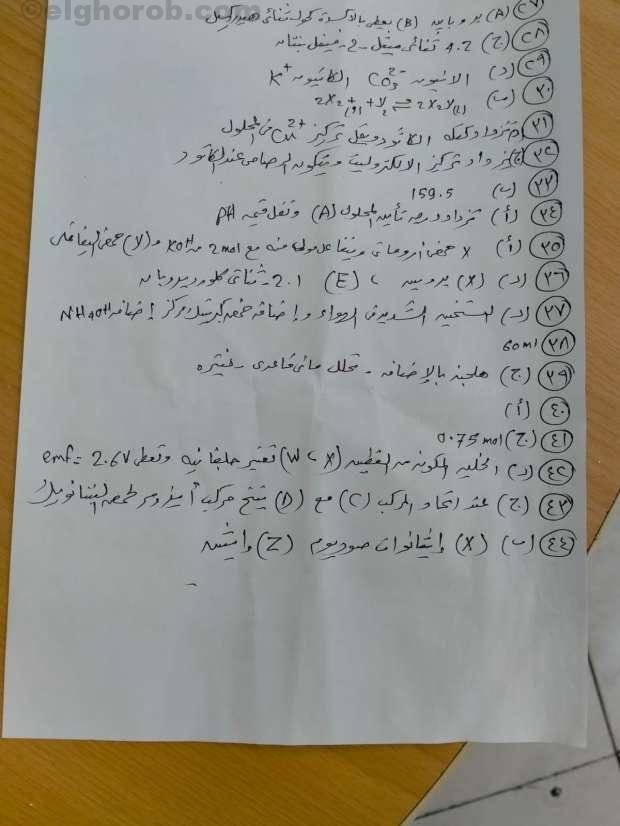 elghorob.com
٢٧ (A) بروباين (B) يعطى بالأكسدة كحول ثنائى هيدروكسيل
٢٨ (ج) 4.2 ثنائى ميثيل-2-فينيل بنتان
٢٩ (د) الانيون CO3²⁻ الكاتيون K⁺
٣٠ (ب) 2X2(g) + Y2 ⇌ 2X2Y(l)
٣١ تزداد كتلة الكاثود ويقل تركيز Cu²⁺ فى المحلول
٣٢ يزداد تركيز الالكتروليت ويتكون الرصاص عند الكاثود
٣٣ (ب) 159.5
٣٤ (أ) تزداد درجة تأين المحلول (A) وتقل قيمة PH
٣٥ (أ) X حمض أروماتى ويتفاعل مول منه مع 2mol من KOH و (Y) حمض اليفاتى
٣٦ (د) (X) بروبين ، (E) 2.1-ثنائى كلورو بروبان
٣٧ (د) التسخين الشديد فى الهواء وإضافة حمض كبريتيك مركز إضافة NH4OH
٣٨ 60ml
٣٩ (ج) هلجنة بالإضافة - تحلل مائى قاعدى - نيترة
٤٠ (أ)
٤١ (ج) 0.75 mol
٤٢ (د) الخلية المكونة من القطبين (X ، W) تعتبر جلفانية وتعطى emf = 2.6V
٤٣ (ج) عند اتحاد المركب (C) مع (D) ينتج مركب أيزومر لحمض البنتانويك
٤٤ (ب) (X) إيثانوات صوديوم (Z) إيثين